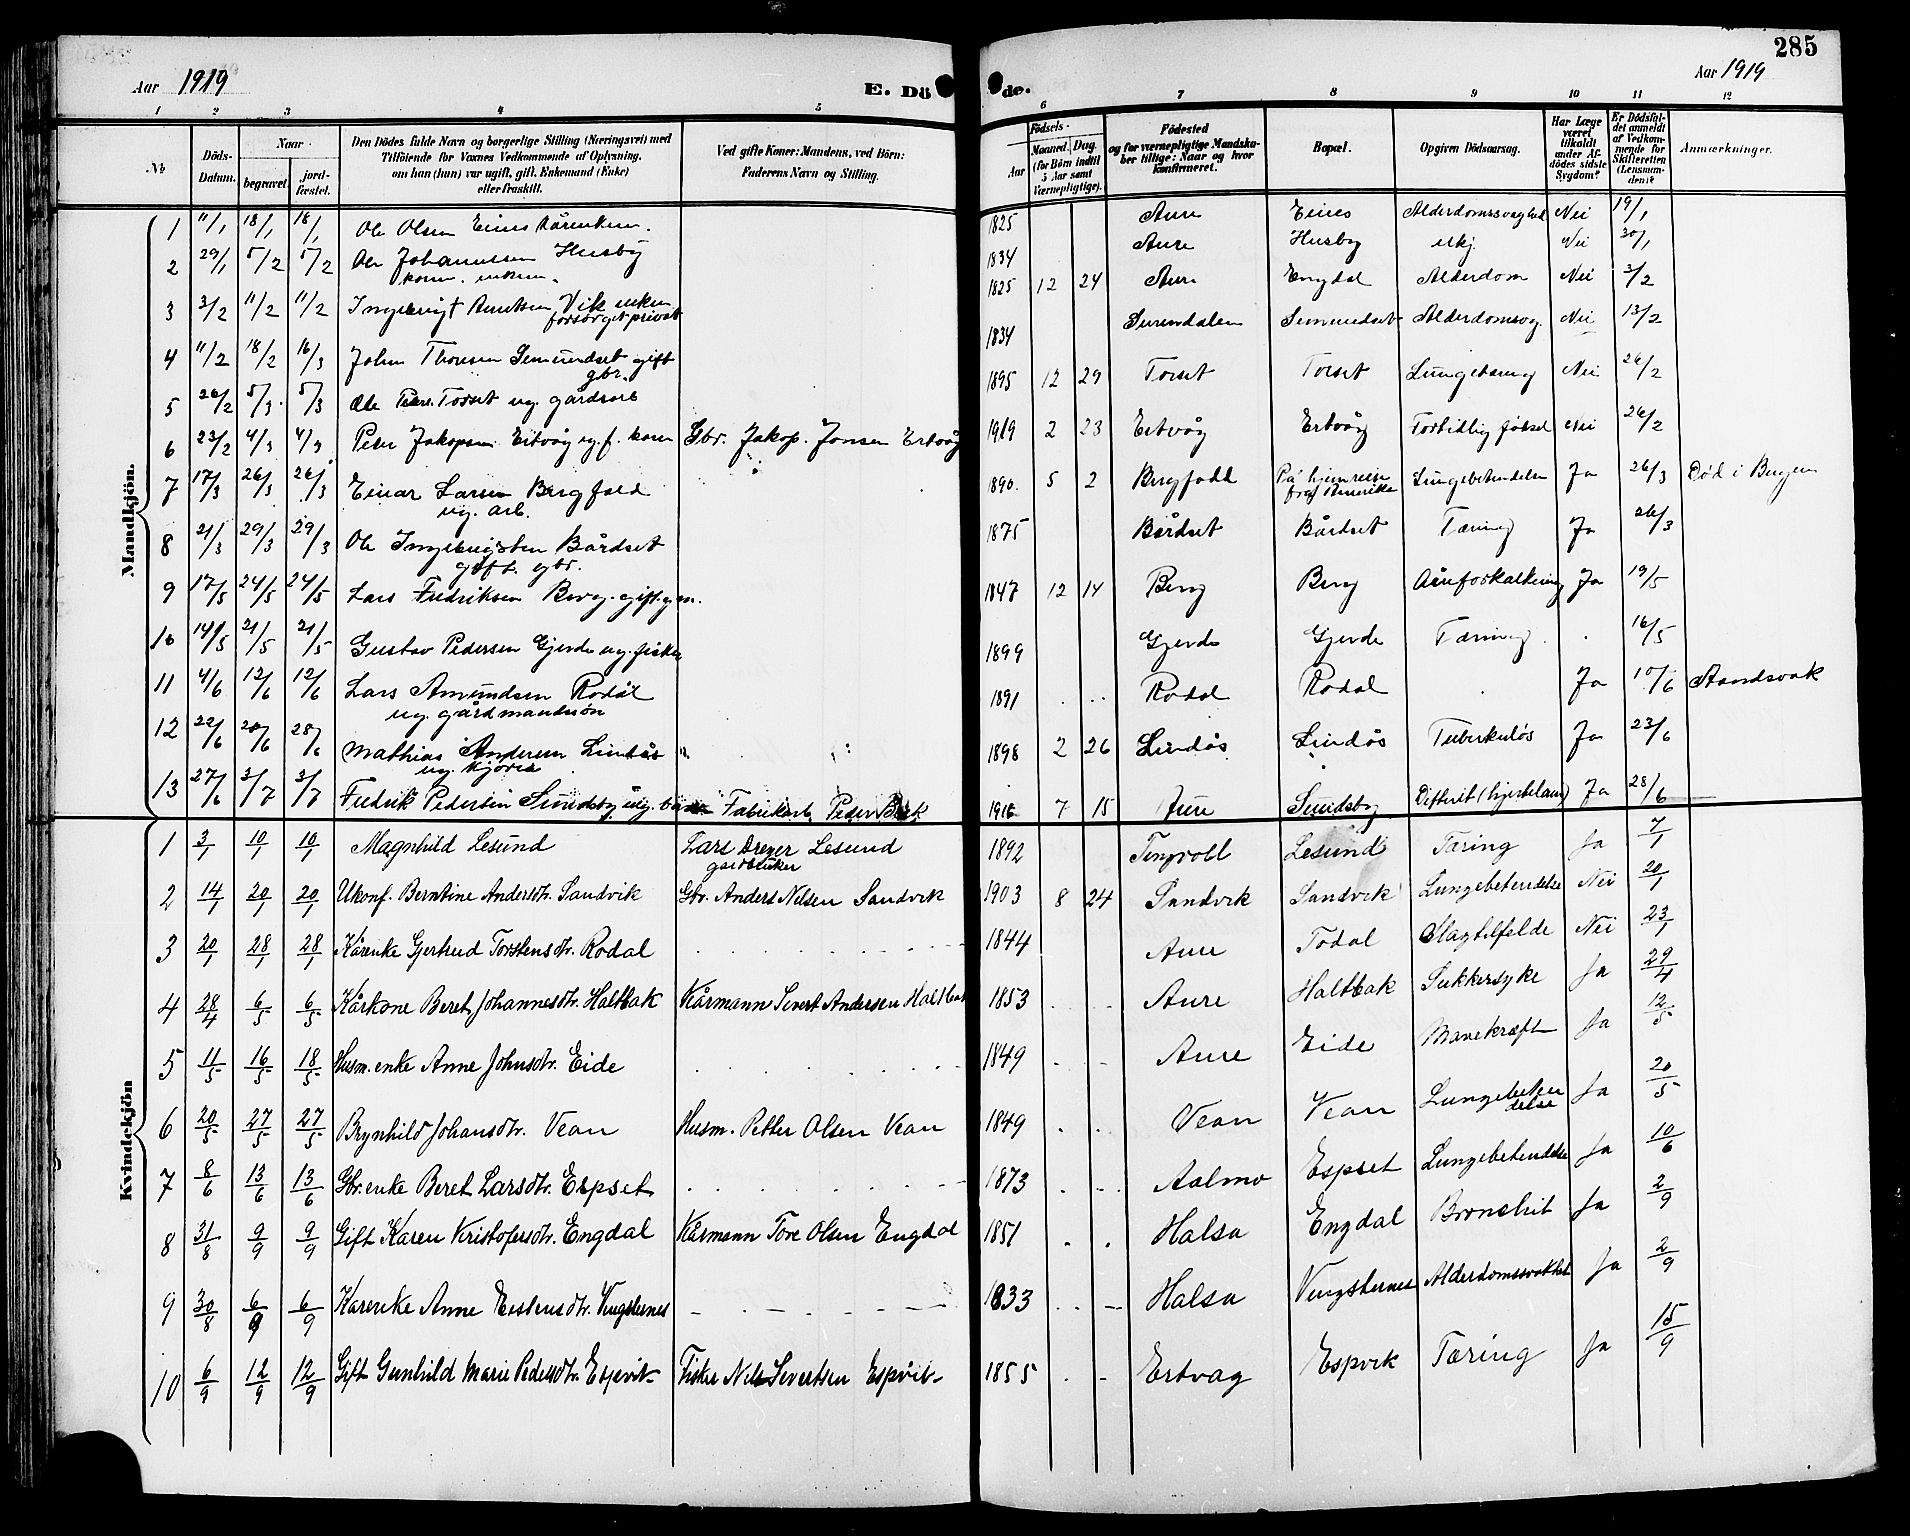 285
Aar 1919
E. Döde.
Aar 1919
1 2 3 4 5 6 7 8 9 10 11 12
No
Döds-Datum.
Naar
begravet.
jordfæstet.
Den Dödes fulde Navn og borgerlige Stilling (Næringsvei) med
Tilföiende for Voxnes Vedkommende af Oplysning,
om han (hun) var ugift, gift, Enkemand (Enke)
eller fraskilt.
Ved gifte Koner: Mandens, ved Börn:
Faderens Navn og Stilling.
Födsels-
Aar
Maaned. Dag.
(for Börn indtil
5 Aar samt
Værnepligtige).
Födested
og for værnepligtige Mandska-
ber tillige: Naar og hvor
konfirmeret.
Bopæl.
Opgiven Dödsaarsag.
Har Læge
været
tilkaldt
under Af-
dödes sidste
Sygdom?
Er Dödsfal-
det anmeldt
af Vedkom-
mende for
Skifteretten
(Lensman-
den)?
Anmærkninger.
Mandkjön.
1 11/1 18/1 18/1 Ole Olsen Eines kårenkem. 1825 Aure Eines Alderdomssvaghed Nei 19/1
2 29/1 5/2 5/2 Ole Johannessen Husby 1834 Aure Husby ukj. Nei 30/1
3 3/2 11/2 11/2 Ingebrigt Knutsen Vik enkem. 1825 12 24 Aure Engdal Alderdom Nei 3/2
forsörget privat
4 11/2 18/2 16/3 John Thoresen Semundset gift 1834 Surendalen Semundset Alderdomsvag. Nei 13/2
gbr.
5 26/2 5/3 5/3 Ole Torset ug. gårdsarb 1895 12 29 Torset Torset Lungebetænd Nei 26/2
6 23/2 4/3 4/3 Peder Jakopsen Ertvåg ug. f. kone Gbr. Jakop. Jonsen Ertvåg 1919 2 23 Ertvåg Ertvåg Fortidlig födsel Nei 26/2
7 17/3 26/3 26/3 Einar Larsen Bergfald 1890. 5 2 Bergfald På hjemreise Lungebetendelse Ja 26/3 Död i Bergen
ug. arb. fra Amerika
8 21/3 29/3 29/3 Ole Ingebrigtsen Bårdset 1875 Bårdset Bårdset Tæring Ja 26/3
gift. gbr.
9 17/5 24/5 24/5 Lars Fredriksen Berg. gift. 1847 12 14 Berg Berg Aareforkalkning Ja 19/5
10 14/5 21/5 21/5 Gustav Pedersen Gjerde ug. fisker 1899 Gjerde Gjerde Tæring 16/5
11 4/6 12/6 12/6 Lars Amundsen Rodal 1891 Rodal Rodal Ja 10/6 Aandsvak
ug. gårdmandssön
12 22/6 28/6 28/6 Mathias Andersen Lindås 1898 2 26 Lindås Lindås Tuberkulös Ja 23/6
13 27/6 3/7 3/7 Fredrik Pedersen Sundsby ug. barn Fabrikarb. Peder Bæk 1916 7 15 Jure Sundsby Difterit (hjertelam) Ja 28/6
Kvindekjön
1 3/1 10/1 10/1 Magnhild Lesund Lars Dreyer Lesund 1892 Tingvoll Lesund Tæring Ja 7/1
gardbruker
2 14/1 20/1 20/1 Ukonf. Berntine Andersdtr. Sandvik Gbr. Anders Nilsen Sandvik 1903 8 24 Sandvik Sandvik Lungebetendelse Nei 20/1
3 20/1 28/1 28/1 Kårenke Gjertrud Torstensdtr. Rodal 1844 Aure Todal Slagtilfelde Nei 23/1
4 28/4 6/5 6/5 Kårkone Beret Johannesdtr. Haltbak Kårmann Sivert Andersen Haltbak 1853 Aure Haltbak Sukkersyke Ja 29/4
5 11/5 16/5 18/5 Husm. enke Anne Johnsdtr. Eide 1849 Aure Eide Mavekræft Ja 12/5
6 20/5 27/5 27/5 Brynhild Johansdtr. Vean Husm. Petter Olsen Vean 1849 Vean Vean Lungebeten Ja 20/5
delse
7 8/6 13/6 13/6 Gbr. enke Beret Larsdtr. Espset 1873 Aalmo Espset Lungebetendelse Ja 10/6
8 31/8 9/9 9/9 Gift Karen Kristofersdtr. Engdal Kårmann Tore Olsen Engdal 1851 Halsa Engdal Bronchit Ja 2/9
9 30/8 6/9 6/9 Kårenke Anne Eistensdtr. Vingsternes 1833 Halsa Vingsternes Alderdomssvakhet Ja 2/9
10 6/9 12/9 12/9 Gift Gunhild Marie Pedersdtr. Espvik Fisker Nils Severtsen Espvik 1855 Ertvag Espvik Tæring Ja 15/9